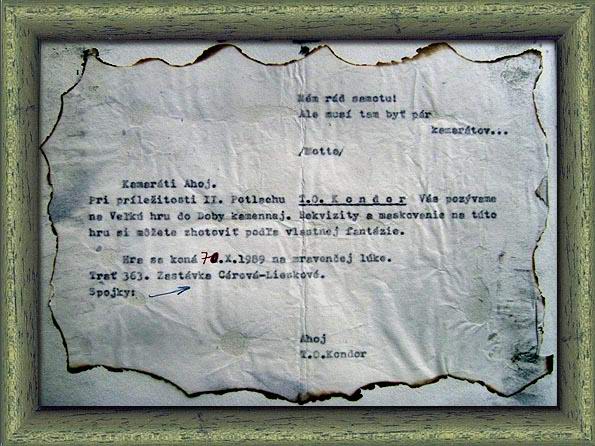 Mám rád samotu!
Ale musí tam byť pár
kamarátov...
/Motto/
Kamaráti Ahoj.
Pri príležitosti II. Potlachu T.O. Kondor Vás pozývame
na Veľkú hru do Doby kamennaj. Rekvizity a maskovanie na túto
hru si môžete zhotoviť podľa vlastnej fantázie.
Hra sa koná 7.X.1989 na mravenčej lúke.
Trať 363. Zastávka Cárová-Lieskové.
Spojky:
Ahoj
T.O.Kondor